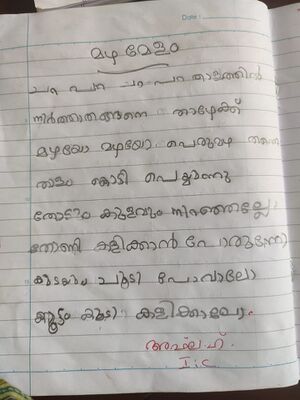 Date :
മഴ മേളം
ചറ പറ ചറ പറ താളത്തിൽ
നിർത്താതങ്ങനെ താഴേക്ക്
മഴയോ മഴയോ പെരുമഴ തന്നെ
താളം കൊട്ടി പെയ്യുന്നു
തോടും കുളവും നിറഞ്ഞല്ലോ
തോണി കളിക്കാൻ പോരുന്നോ
കുടയും ചൂടി പോവാലോ
കൂട്ടം കൂടി കളിക്കാലോ.
I:C